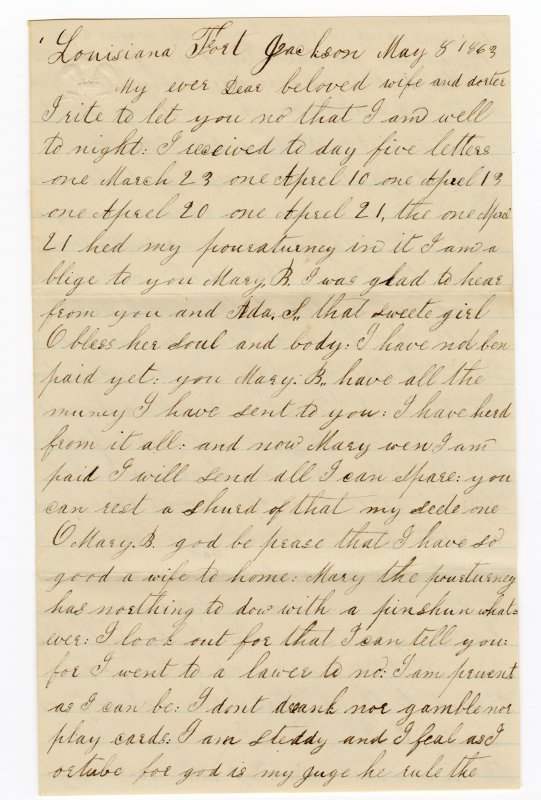 Louisiana Fort Jackson May 8 1863
My ever Dear beloved wife and dorter
I rite to let you no that I am well
to night: I received to day five letters
one March 23 one Aprel 10 one Aprel 13
one Aprel 20 one Aprel 21, the one Aprel
21 hed my pouraturney in it I am a
blige to you Mary. B. I was glad to hear
from you and Ada. S,, that sweete girl
O bless her soul and body: I have not ben
paid yet: you Mary. B,, have all the
muney I have sent to you: I have herd
from it all: and now Mary wen I am
paid I will send all I can spare: you
can rest a shurd of that my sede one
O Mary. B. god be prase that I have so
good a wife to home: Mary the pourturney
has northing to dow with a pinshun what=
ever: I look out for that I can tell you:
for I went to a lawer to no: I am pruent
as I can be: I dont drank nor gamble nor
play cards: I am steddy and I feal as I
ortube for god is my juge he rule the